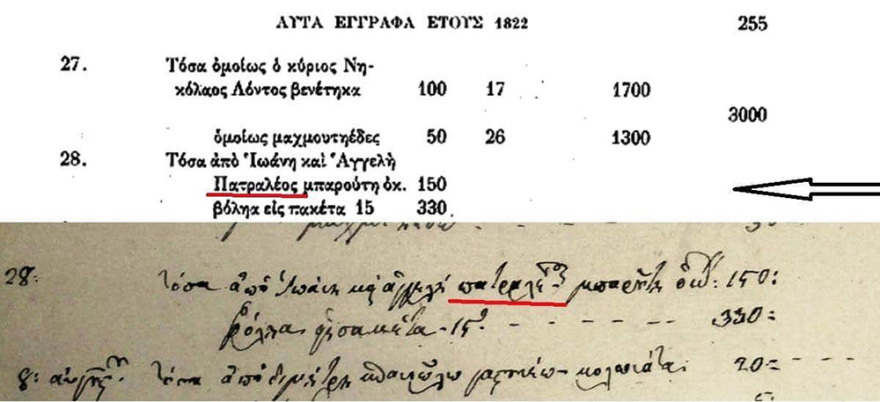 ΑΥΤΑ ΕΓΓΡΑΦΑ ΕΤΟΥΣ 1822 255
27. Τόσα ὁμοίως ὁ κύριος Νη-
κόλαος Λόντος βενέτηκα 100 17 1700
3000
ὁμοίως μαχμουτηέδες 50 26 1300
28. Τόσα ἀπὸ Ἰωάνη καὶ Ἀγγελῆ
Πατραλέος μπαρούτη ὀκ. 150
βόληα εἰς πακέτα 15 330
28: τόσα ἀπὸ Ἰωάνη κὶ ἀγγελῆ πατραλέος μπαρούτη ὀκ: 150:
βόληα 15 - - - - 330=
8: τόσα ἀπὸ 20=